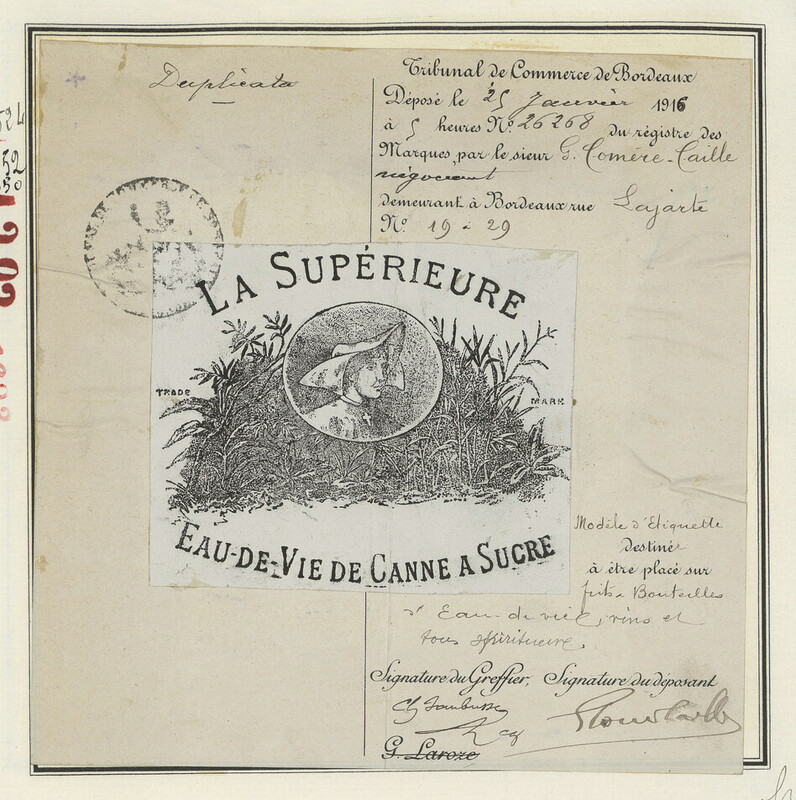 Duplicata
Tribunal de Commerce de Bordeaux
Déposé le 25 Janvier 1916
à 5 heures No. 26268 du régistre des
Marques, par le sieur G. Comère-Caille
négociant
demeurant à Bordeaux rue Lajarte
No. 19 à 29
LA SUPÉRIEURE
TRADE
MARK
EAU-DE-VIE DE CANNE A SUCRE
Modèle d'Etiquette
destiné
à être placé sur
fûts & Bouteilles
d'Eau-de-vie, vins et
tous spiritueux.
Signature du Greffier, Signature du déposant
G. Laroze